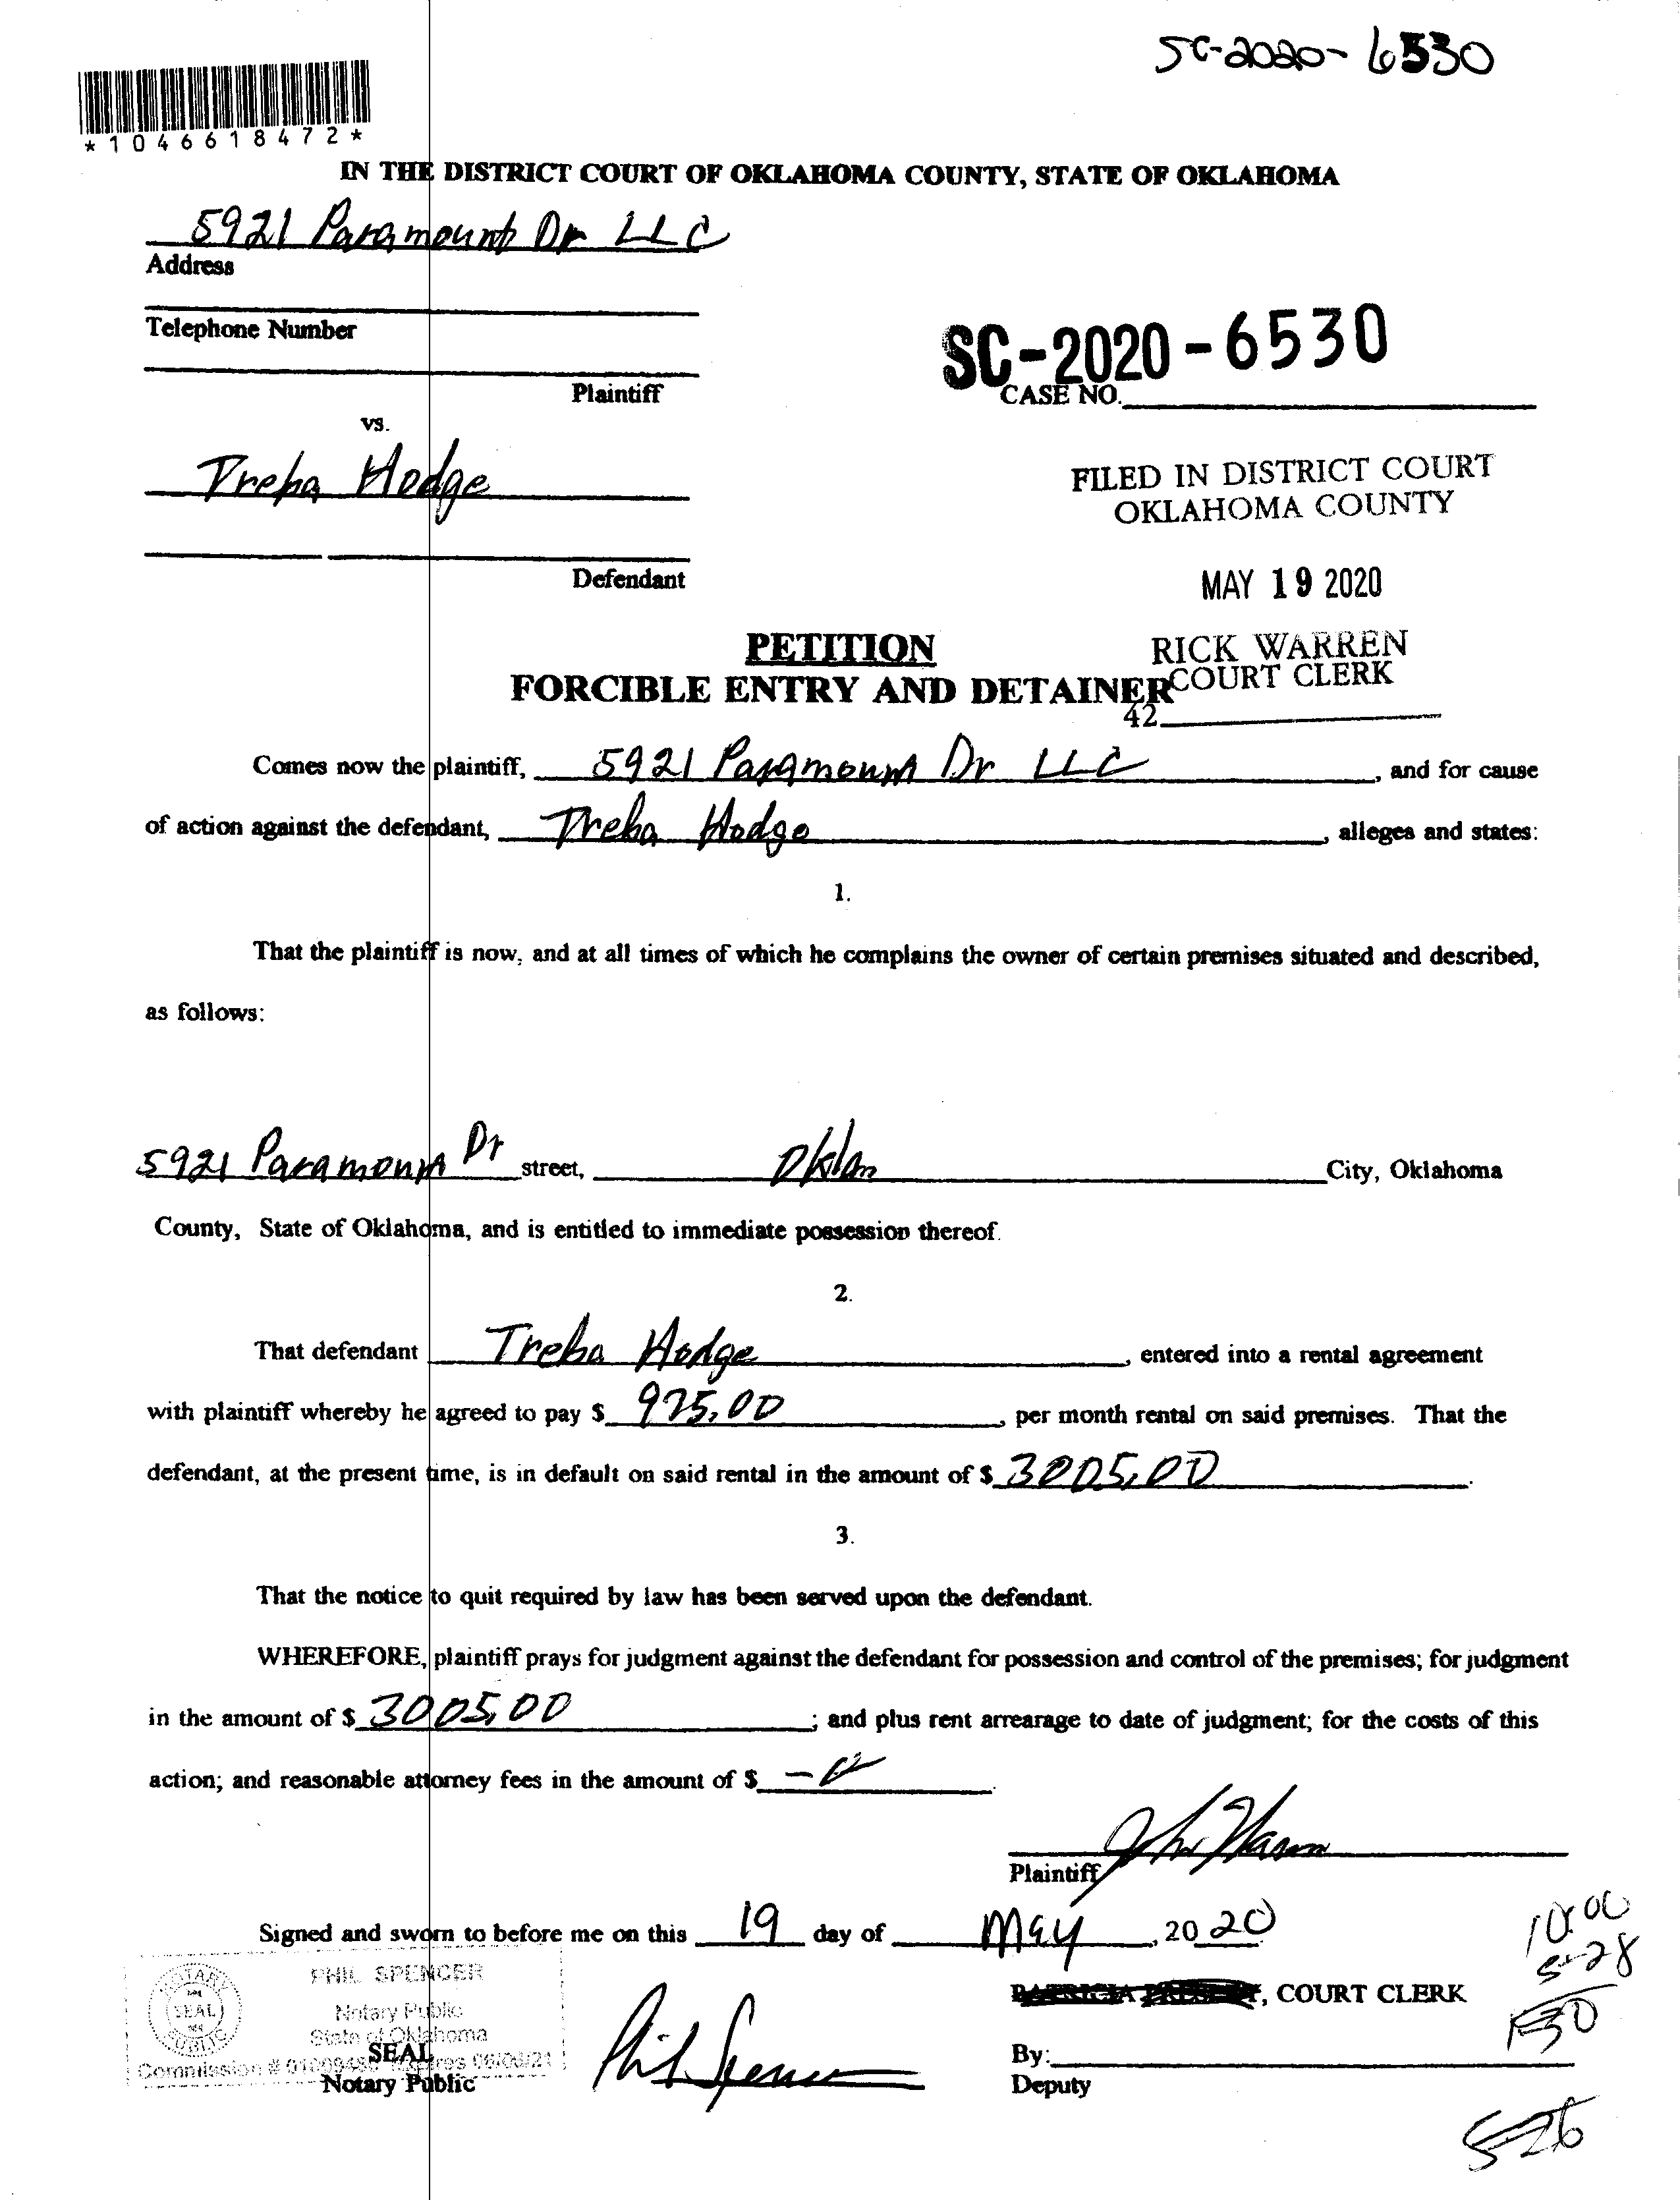 SC-2020-6530
*1046618472*
IN THE DISTRICT COURT OF OKLAHOMA COUNTY, STATE OF OKLAHOMA
5921 Paramount Dr LLC
Address
Telephone Number
SC-2020-6530
Plaintiff
CASE NO.
vs.
Treba Hodge
FILED IN DISTRICT COURT
OKLAHOMA COUNTY
Defendant
MAY 19 2020
PETITION
RICK WARREN
FORCIBLE ENTRY AND DETAINER
COURT CLERK
42
Comes now the plaintiff, 5921 Paramount Dr LLC, and for cause
of action against the defendant, Treba Hodge, alleges and states:
1.
That the plaintiff is now, and at all times of which he complains the owner of certain premises situated and described,
as follows:
5921 Paramount Dr street, City, Oklahoma
County, State of Oklahoma, and is entitled to immediate possession thereof.
2.
That defendant Treba Hodge, entered into a rental agreement
with plaintiff whereby he agreed to pay $ 975.00, per month rental on said premises. That the
defendant, at the present time, is in default on said rental in the amount of $ 3005.00.
3.
That the notice to quit required by law has been served upon the defendant.
WHEREFORE, plaintiff prays for judgment against the defendant for possession and control of the premises; for judgment
in the amount of $ 3005.00; and plus rent arrearage to date of judgment; for the costs of this
action; and reasonable attorney fees in the amount of $
Plaintiff
Signed and sworn to before me on this 19 day of May, 2020
10:00
5-28
PHIL SPENCER
Notary Public
State of Oklahoma
NOTARY
SEAL
PUBLIC
, COURT CLERK
SEAL
Notary Public
Phil Spencer
By:
Deputy
5-26